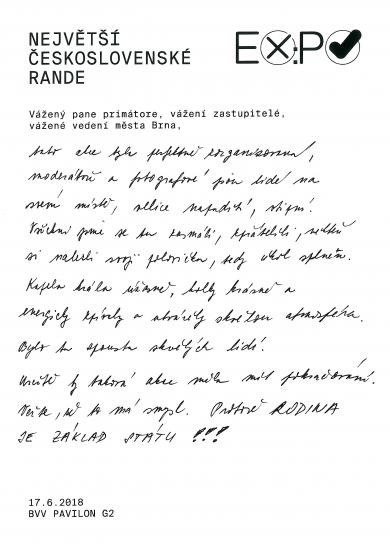 NEJVĚTŠÍ
ČESKOSLOVENSKÉ
RANDE
EXPO
Vážený pane primátore, vážení zastupitelé,
vážené vedení města Brna,
tato akce byla perfektně zorganizovaná,
moderátoři a fotografové jsou lidé na
svém místě, velice nápadití, vtipní.
Všichni jsme se tu zasmáli, spřátelili, někteří
si nalezli svoji polovičku, tedy úkol splněn.
Kapela hrála úžasně, holky krásně a
energicky zpívaly a utvářely skvělou atmosféru.
Bylo tu spousta skvělých lidí.
Určitě by taková akce měla mít pokračování.
Věřte, že to má smysl. Protože RODINA
JE ZÁKLAD STÁTU !!!
17.6.2018
BVV PAVILON G2